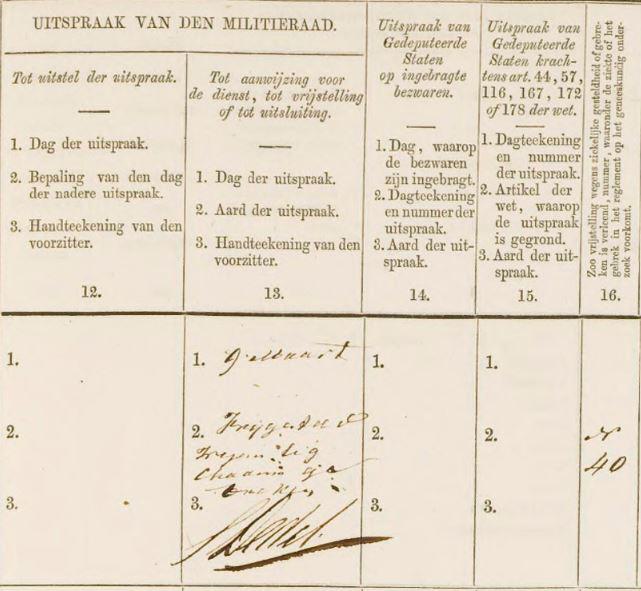 UITSPRAAK VAN DEN MILITIERAAD.
Tot uitstel der uitspraak.
1. Dag der uitspraak.
2. Bepaling van den dag
der nadere uitspraak.
3. Handteekening van den
voorzitter.
12.
Tot aanwijzing voor
de dienst, tot vrijstelling
of tot uitsluiting.
1. Dag der uitspraak.
2. Aard der uitspraak.
3. Handteekening van den
voorzitter.
13.
Uitspraak van
Gedeputeerde
Staten
op ingebragte
bezwaren.
1. Dag, waarop
de bezwaren
zijn ingebragt.
2. Dagteekening
en nummer der
uitspraak.
3. Aard der uit-
spraak.
14.
Uitspraak van
Gedeputeerde
Staten krach-
tens art. 44, 57,
116, 167, 172
of 178 der wet.
1. Dagteekening
en nummer
der uitspraak.
2. Artikel der
wet, waarop
de uitspraak
is gegrond.
3. Aard der uit-
spraak.
15.
Zoo vrijstelling wegens ziekelijke gesteldheid of gebre-
ken is verleend, nummer, waaronder de ziekte of het
gebrek in het reglement op het geneeskundig onder-
zoek voorkomt.
16.
1.
1. 9 Maart
1.
1.
2.
2.
2.
2.
40
3.
3.
3.
3.